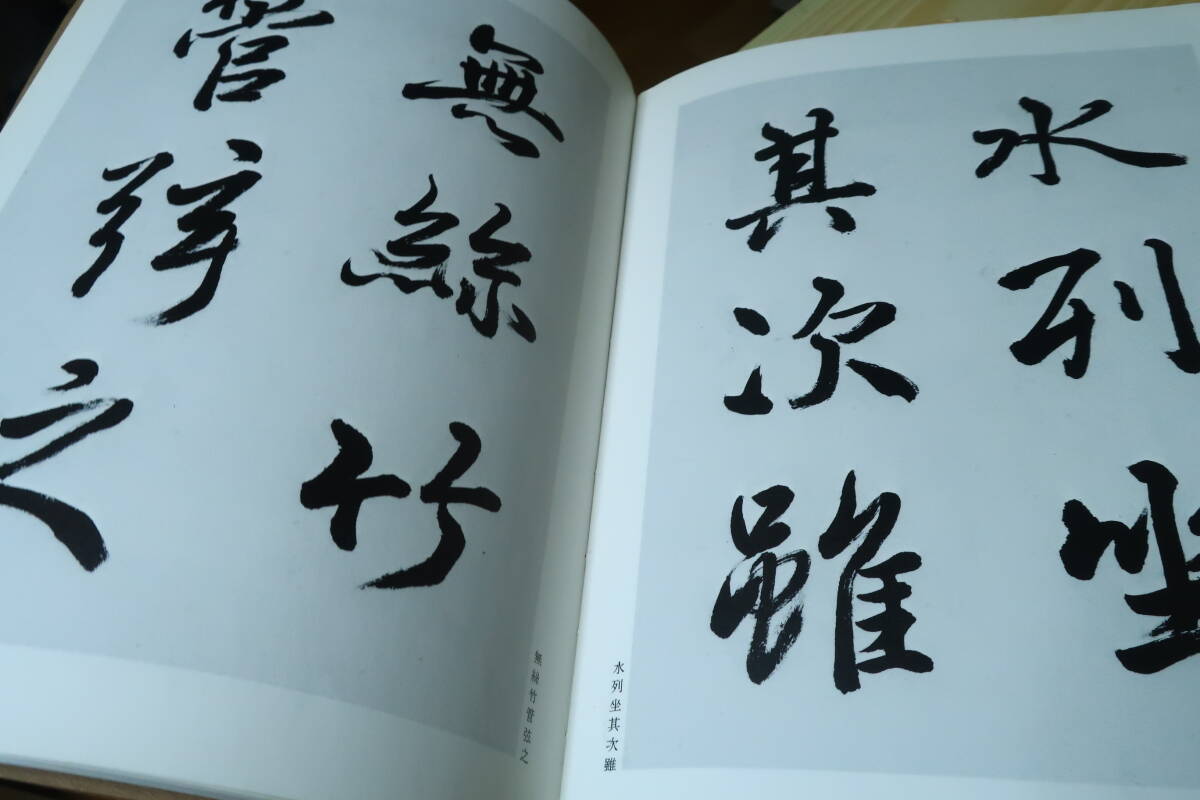 水列坐
其次雖
水列坐其次雖
無絲竹
管弦之
無絲竹管弦之